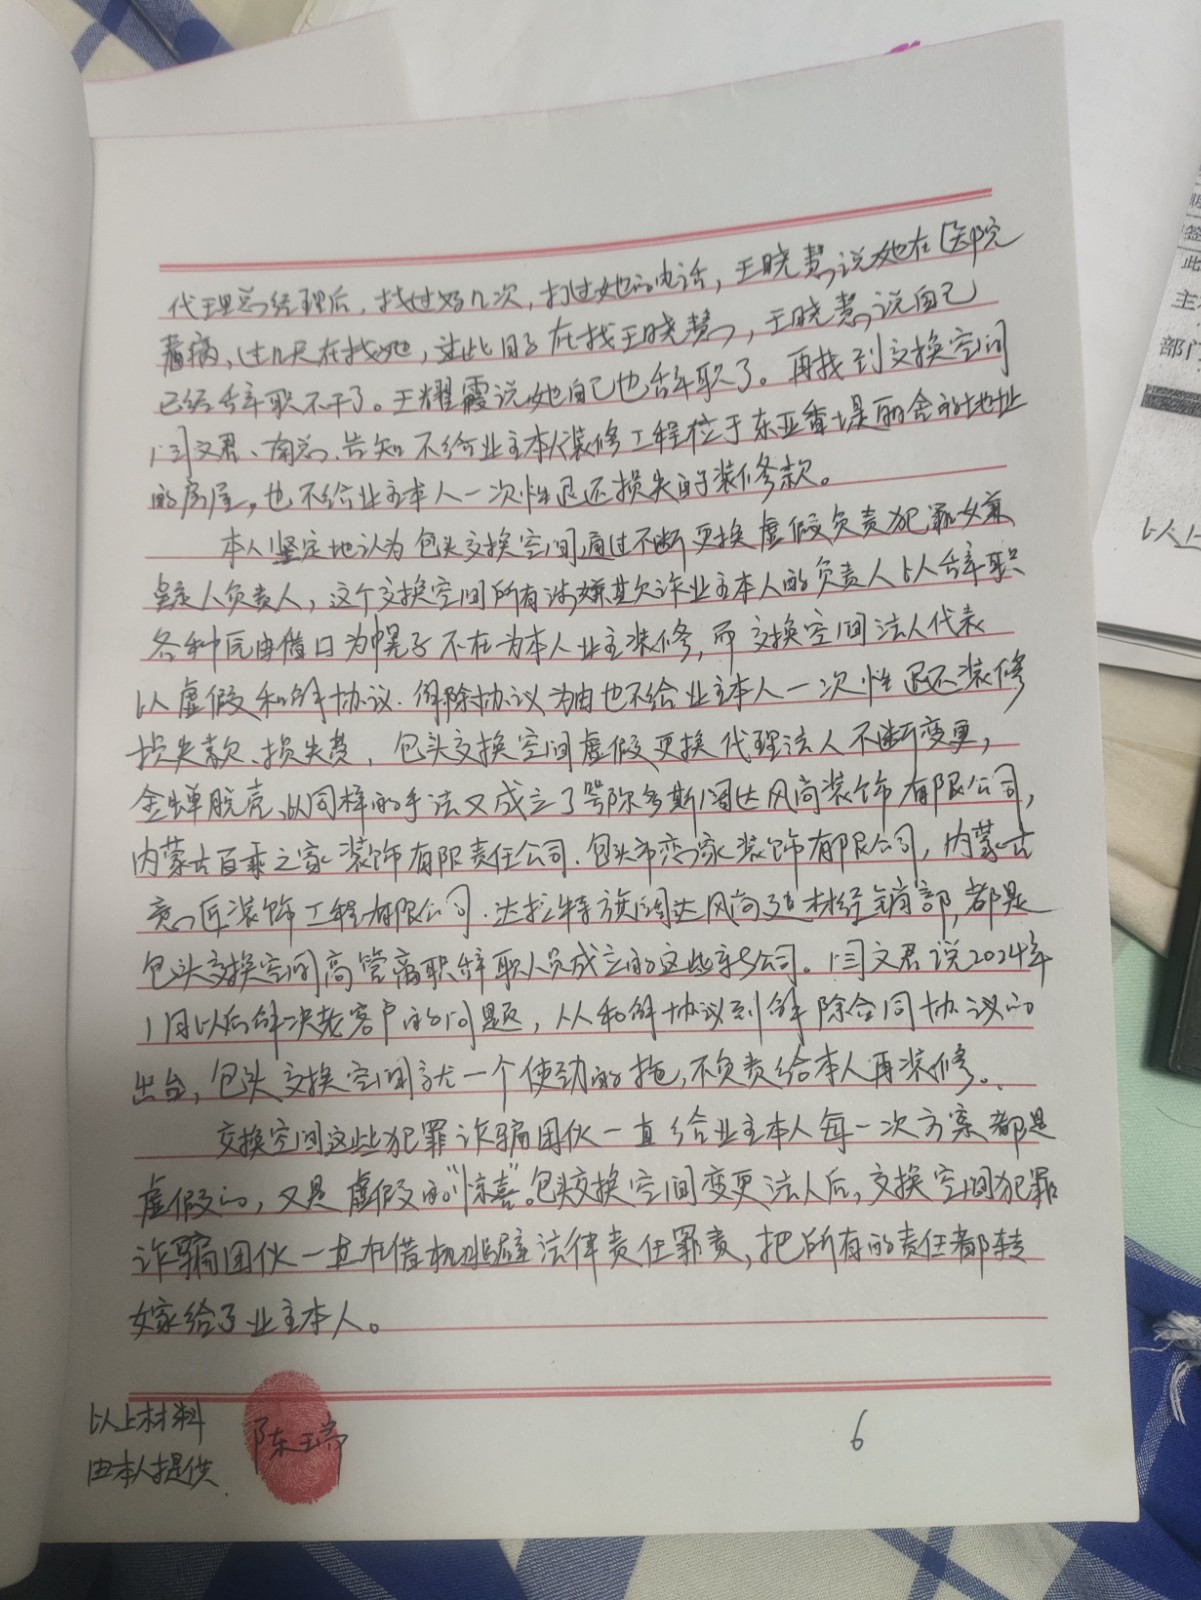 代理总经理后，找过好几次，打过她的电话，王晓慧说她在医院
看病，过几天在找她，过些日子在找王晓慧，王晓慧说自己
已经辞职不干了。王耀霞说她自己也辞职了。再找到交换空间
闫文君、南总、告知不给业主本人装修工程位于东亚香堤丽舍的地址
的房屋，也不给业主本人一次性退还损失的装修款。
本人坚定地认为包头交换空间通过不断更换虚假负责犯罪嫌
疑人负责人，这个交换空间所有涉嫌其欺诈业主本人的负责人以辞职
各种原由借口为幌子不在为本人业主装修，而交换空间法人代表
以虚假和解协议、解除协议为由也不给业主本人一次性退还装修
损失款、损失费，包头交换空间虚假更换代理法人不断变更，
金蝉脱壳、以同样的手法又成立了鄂尔多斯阔达风尚装饰有限公司，
内蒙古百乘之家装饰有限责任公司、包头市恋家装饰有限公司，内蒙古
意匠装饰工程有限公司、达拉特旗阔达风尚建材经销部，都是
包头交换空间高管离职辞职人员成立的这些公司。闫文君说2024年
1月以后解决老客户的问题，从和解协议到解除合同协议的
出台，包头交换空间就一个使劲的拖，不负责给本人再装修。
交换空间这些犯罪诈骗团伙一直给业主本人每一次方案都是
虚假的，又是虚假的“惊喜”。包头交换空间变更法人后，交换空间犯罪
诈骗团伙一直在借机逃避法律责任罪责，把所有的责任都转
嫁给了业主本人。
以上材料
由本人提供
陈玉
6
签
此
主
部门
以上